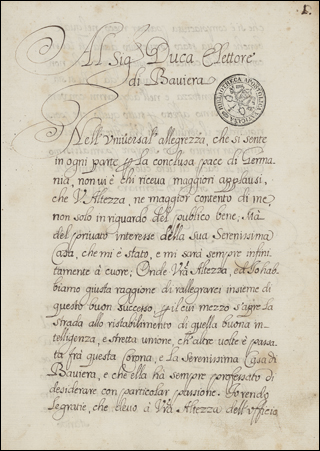 1.
Al Sig.r Duca Elettore
di Baviera
BIBLIOTHECA APOSTOLICA VATICANA
Nell'Vniuersal'allegrezza, che si sente
in ogni parte p la conclusa pace di Germa-
nia, non ui è chi riceua maggiori applausi,
che V. Altezza, ne maggior contento di me,
non solo in riguardo del publico bene, Mà
del priuato interesse della sua Serenissima
Casa, che mi è stato, e mi sarà sempre infini-
tamente à cuore; Onde Vrã Altezza, ed Io hab-
biamo giusta raggione di rallegrarci insieme di
questo buon successo, p il cui mezzo s'apre la
strada allo ristabilimento di quella buona in-
telligenza, e stretta unione, ch'altre uolte è passa-
ta frà questa Corona, e la Serenissima Casa di
Bauiera, e che ella hà sempre professato di
desiderare con particolar passione. Jo rendo
le gratie, che deuo à Vrã Altezza dell'officio